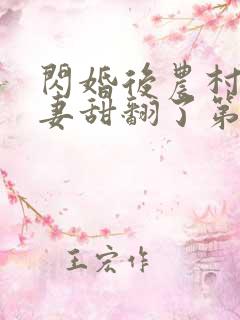 閃婚後農村
妻甜翻了第
王宏作